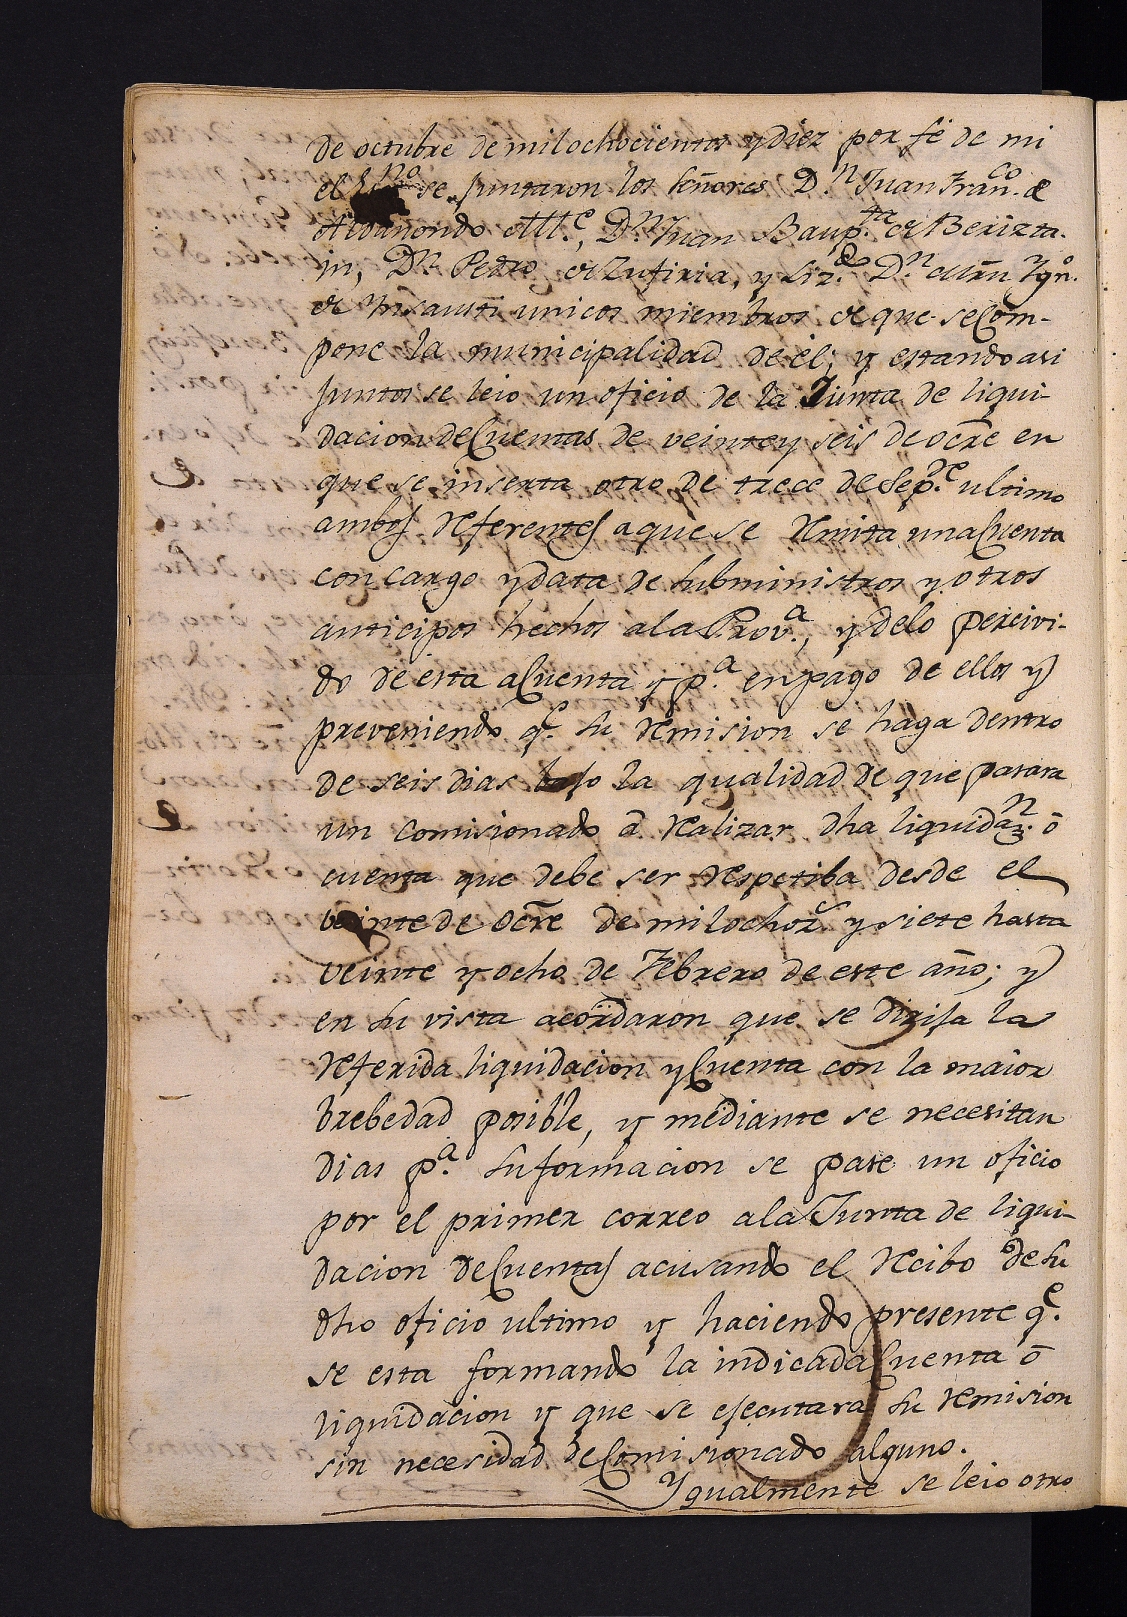 de octubre de milochocientos y diez por fé de mi
el Esno se juntaron los señores Dn. Juan Franco. de
Allc., Dn. Juan Baupta. de Berizta-
in, Dn. Pedro de Zufiria, y Lizdo. Dn. Ygno.
de Ynsausti unicos miembros de que se Com-
pone la municipalidad de él; y estando asi
juntos se leio un oficio de la Junta de liqui-
dacion de Cuentas de veinte y seis de ocre en
que se inserta otro de trece de Sepe. ultimo
ambos referentes a que se remita una Cuenta
con cargo y data de subministros y otros
anticipos hechos a la Prova., y de lo percivi-
do de esta a Cuenta y pa. en pago de ellos y
preveniendo qe. su remision se haga dentro
de seis dias bajo la qualidad de que pasara
un comisionado á realizar dha liquidazn. ó
cuenta que debe ser respetiba desde el
veinte de ocre de mil ochoz. y siete hasta
veinte y ocho de Febrero de este año; y
en su vista acordaron que se dirija la
referida liquidacion y Cuenta con la maior
brebedad posible, y mediante se necesitan
dias pa. su formacion se pase un oficio
por el primer correo a la Junta de liqui-
dacion de Cuentas acusando el recibo de su
dho oficio ultimo y haciendo presente qe.
se esta formando la indicada Cuenta ó
liquidacion y que se ejecutara su remision
sin necesidad de Comisionado alguno.
Ygualmente se leio otro